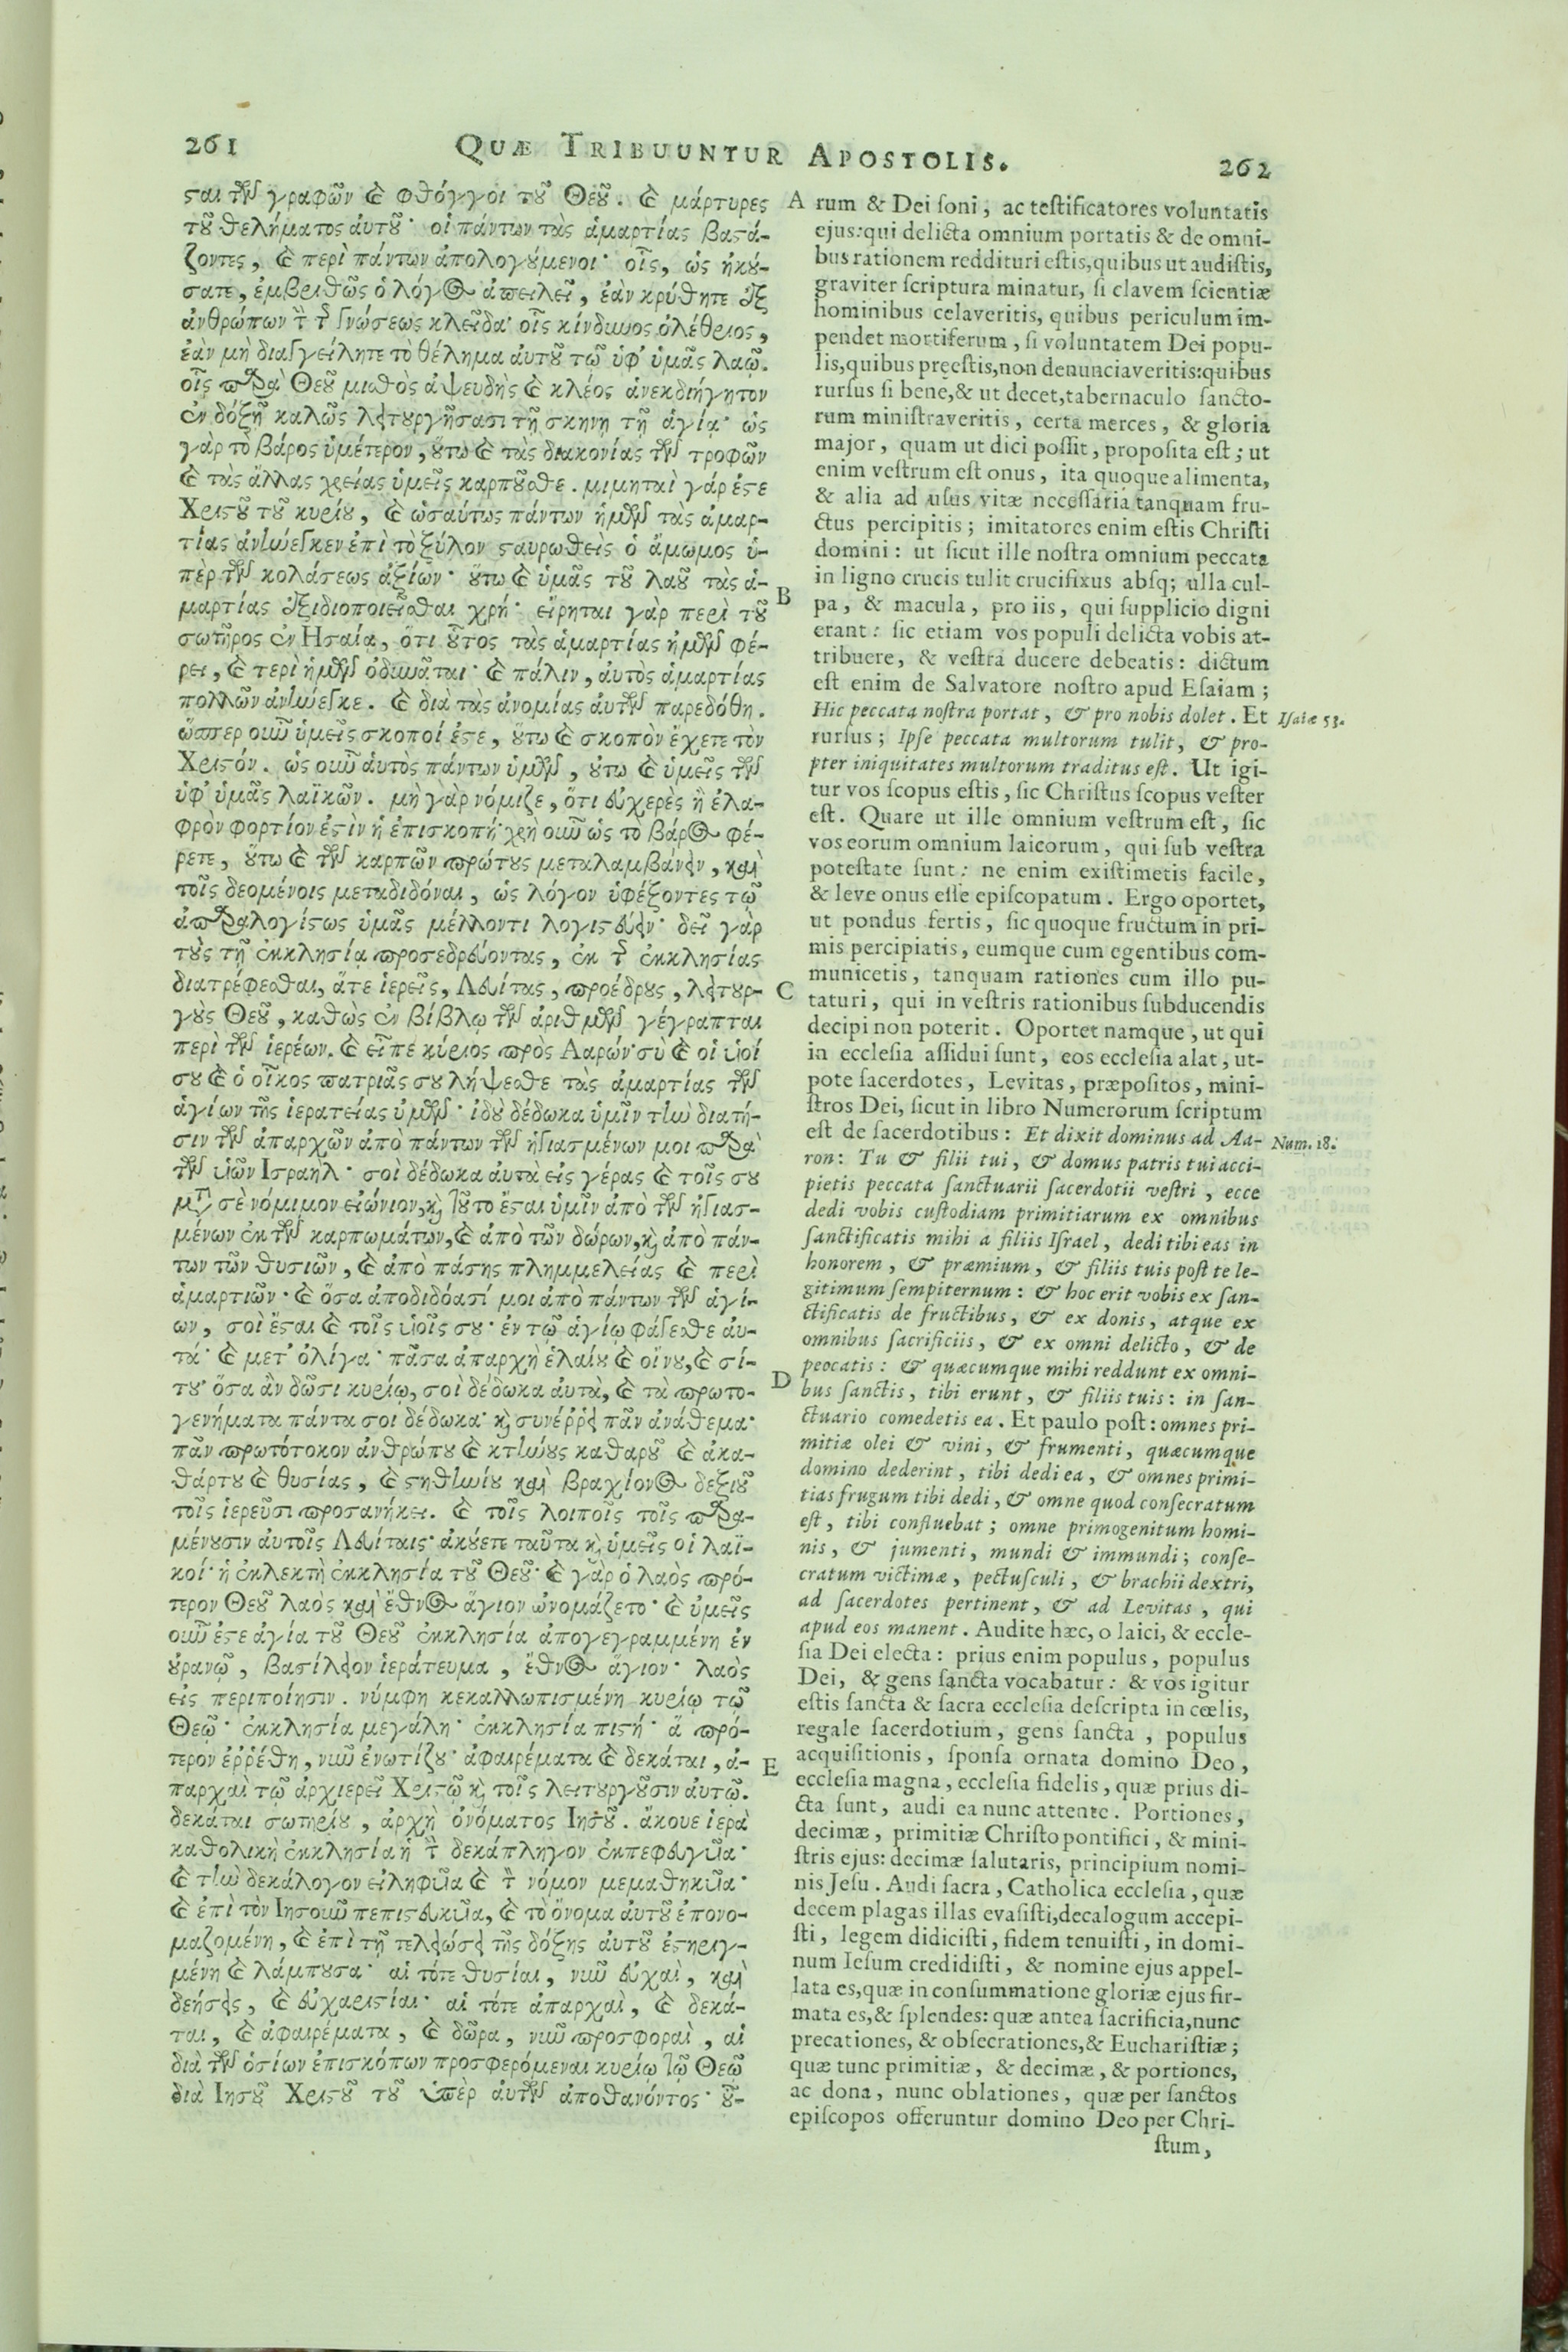 261 QUÆ TRIBUUNTUR APOSTOLIS. 262
ται τῶν γραφῶν καὶ φθόγγοι τοῦ Θεοῦ. καὶ μάρτυρες
τοῦ θελήματος αὐτοῦ· οἱ πάντων τὰς ἁμαρτίας βαστά-
ζοντες, καὶ περὶ πάντων ἀπολογούμενοι· οἷς, ὡς ἠκού-
σατε, ἐμβριθῶς ὁ λόγος ἀπειλεῖ, ἐὰν κρύψητε ἐξ
ἀνθρώπων τὴν τῆς γνώσεως κλεῖδα· οἷς κίνδυνος ὀλέθριος,
ἐὰν μὴ διαγγείλητε τὸ θέλημα αὐτοῦ τῷ ὑφ' ὑμᾶς λαῷ.
οἷς παρὰ Θεοῦ μισθὸς ἀψευδὴς καὶ κλέος ἀνεκδιήγητον
ἐν δόξῃ καλῶς λειτουργήσασι τῇ σκηνῇ τῇ ἁγίᾳ· ὡς
γὰρ τὸ βάρος ὑμέτερον, οὕτω καὶ τὰς διακονίας τῶν τροφῶν
καὶ τὰς ἄλλας χρείας ὑμεῖς καρποῦσθε. μιμηταὶ γάρ ἐστε
Χριστοῦ τοῦ κυρίου, καὶ ὡσαύτως πάντων ἡμῶν τὰς ἁμαρ-
τίας ἀνήνεγκεν ἐπὶ τὸ ξύλον σταυρωθεὶς ὁ ἄμωμος ὑ-
πὲρ τῶν κολάσεως ἀξίων· οὕτω καὶ ὑμᾶς τοῦ λαοῦ τὰς ἁ-
μαρτίας ἐξιδιοποιεῖσθαι χρή· εἴρηται γὰρ περὶ τοῦ
σωτῆρος ἐν Ησαίᾳ, ὅτι οὗτος τὰς ἁμαρτίας ἡμῶν φέ-
ρει, καὶ περὶ ἡμῶν ὀδυνᾶται· καὶ πάλιν, αὐτὸς ἁμαρτίας
πολλῶν ἀνήνεγκε. καὶ διὰ τὰς ἀνομίας αὐτῶν παρεδόθη.
ὥσπερ οὖν ὑμεῖς σκοποί ἐστε, οὕτω καὶ σκοπὸν ἔχετε τὸν
Χριστόν. ὡς οὖν αὐτὸς πάντων ὑμῶν, οὕτω καὶ ὑμεῖς τῶν
ὑφ' ὑμᾶς λαϊκῶν. μὴ γὰρ νόμιζε, ὅτι εὐχερὲς ἢ ἐλα-
φρὸν φορτίον ἐστὶν ἡ ἐπισκοπή· χρὴ οὖν ὡς τὸ βάρος φέ-
ρετε, οὕτω καὶ τῶν καρπῶν πρώτους μεταλαμβάνειν, καὶ
τοῖς δεομένοις μεταδιδόναι, ὡς λόγον ὑφέξοντες τῷ
ἀπαραλογίστως ὑμᾶς μέλλοντι λογιστεύειν· δεῖ γὰρ
τοὺς τῇ ἐκκλησίᾳ προσεδρεύοντας, ἐκ τῆς ἐκκλησίας
διατρέφεσθαι, ἅτε ἱερεῖς, Λευίτας, προέδρους, λειτουρ-
γοὺς Θεοῦ, καθὼς ἐν βίβλῳ τῶν ἀριθμῶν γέγραπται
περὶ τῶν ἱερέων. καὶ εἶπε κύριος πρὸς Ααρών· σὺ καὶ οἱ υἱοί
σου καὶ ὁ οἶκος πατριᾶς σου λήψεσθε τὰς ἁμαρτίας τῶν
ἁγίων τῆς ἱερατείας ὑμῶν· ἰδοὺ δέδωκα ὑμῖν τὴν διατή-
σιν τῶν ἀπαρχῶν ἀπὸ πάντων τῶν ἡγιασμένων μοι παρὰ
τῶν υἱῶν Ισραήλ· σοὶ δέδωκα αὐτὰ εἰς γέρας καὶ τοῖς σου
μετὰ σὲ νόμιμον αἰώνιον, καὶ τοῦτο ἔσται ὑμῖν ἀπὸ τῶν ἡγιασ-
μένων ἐκ τῶν καρπωμάτων, καὶ ἀπὸ τῶν δώρων, καὶ ἀπὸ πάν-
των τῶν θυσιῶν, καὶ ἀπὸ πάσης πλημμελείας καὶ περὶ
ἁμαρτιῶν· καὶ ὅσα ἀποδιδόασί μοι ἀπὸ πάντων τῶν ἁγί-
ων, σοὶ ἔσται καὶ τοῖς υἱοῖς σου· ἐν τῷ ἁγίῳ φάγεσθε αὐ-
τά· καὶ μετ' ὀλίγα· πᾶσα ἀπαρχὴ ἐλαίου καὶ οἴνου, καὶ σί-
του· ὅσα ἂν δῶσι κυρίῳ, σοὶ δέδωκα αὐτὰ, καὶ τὰ πρωτο-
γενήματα πάντα σοι δέδωκα· καὶ συνέῤῥει πᾶν ἀνάθεμα·
πᾶν πρωτότοκον ἀνθρώπου καὶ κτήνους καθαροῦ καὶ ἀκα-
θάρτου καὶ θυσίας, καὶ στηθυνίου καὶ βραχίονος δεξιοῦ
τοῖς ἱερεῦσι προσανήκει. καὶ τοῖς λοιποῖς τοῖς παρα-
μένουσιν αὐτοῖς Λευίταις· ἀκούετε ταῦτα καὶ ὑμεῖς οἱ λαϊ-
κοί· ἡ ἐκλεκτὴ ἐκκλησία τοῦ Θεοῦ· καὶ γὰρ ὁ λαὸς πρό-
τερον Θεοῦ λαὸς καὶ ἔθνος ἅγιον ὠνομάζετο· καὶ ὑμεῖς
οὖν ἐστε ἁγία τοῦ Θεοῦ ἐκκλησία ἀπογεγραμμένη ἐν
οὐρανῷ, βασίλειον ἱεράτευμα, ἔθνος ἅγιον· λαὸς
εἰς περιποίησιν. νύμφη κεκαλλωπισμένη κυρίῳ τῷ
Θεῷ· ἐκκλησία μεγάλη· ἐκκλησία πιστή· ἃ πρό-
τερον ἐῤῥέθη, νῦν ἐνωτίζου· ἀφαιρέματα καὶ δεκάται, ἀ-
παρχαὶ τῷ ἀρχιερεῖ Χριστῷ καὶ τοῖς λειτουργοῦσιν αὐτῷ.
δεκάται σωτηρίου, ἀρχὴ ὀνόματος Ιησοῦ. ἄκουε ἱερὰ
καθολικὴ ἐκκλησία ἡ τὴν δεκάπληγον ἐκπεφευγυῖα·
καὶ τὴν δεκάλογον εἰληφυῖα καὶ τὸν νόμον μεμαθηκυῖα·
καὶ ἐπὶ τὸν Ιησοῦν πεπιστευκυῖα, καὶ τὸ ὄνομα αὐτοῦ ἐπονο-
μαζομένη, καὶ ἐπὶ τῇ τελειώσει τῆς δόξης αὐτοῦ ἐστηριγ-
μένη καὶ λάμπουσα· αἱ τότε θυσίαι, νῦν εὐχαὶ, καὶ
δεήσεις, καὶ εὐχαριστίαι· αἱ τότε ἀπαρχαὶ, καὶ δεκά-
ται, καὶ ἀφαιρέματα, καὶ δῶρα, νῦν προσφοραὶ, αἱ
διὰ τῶν ὁσίων ἐπισκόπων προσφερόμεναι κυρίῳ τῷ Θεῷ
διὰ Ιησοῦ Χριστοῦ τοῦ ὑπὲρ αὐτῶν ἀποθανόντος· οὗ-
A
B
C
D
E
rum & Dei soni, ac testificatores voluntatis
ejus: qui delicta omnium portatis & de omni-
bus rationem reddituri estis, quibus ut audistis,
graviter scriptura minatur, si clavem scientiæ
hominibus celaveritis, quibus periculum im-
pendet mortiferum, si voluntatem Dei popu-
lis, quibus præestis, non denunciaveritis: quibus
rursus si bene, & ut decet, tabernaculo sancto-
rum ministraveritis, certa merces, & gloria
major, quam ut dici possit, proposita est; ut
enim vestrum est onus, ita quoque alimenta,
& alia ad usus vitæ necessaria tanquam fru-
ctus percipitis; imitatores enim estis Christi
domini: ut sicut ille nostra omnium peccata
in ligno crucis tulit crucifixus absq; ulla cul-
pa, & macula, pro iis, qui supplicio digni
erant: sic etiam vos populi delicta vobis at-
tribuere, & vestra ducere debeatis: dictum
est enim de Salvatore nostro apud Esaiam;
Hic peccata nostra portat, & pro nobis dolet. Et
rursus; Ipse peccata multorum tulit, & pro-
pter iniquitates multorum traditus est. Ut igi-
tur vos scopus estis, sic Christus scopus vester
est. Quare ut ille omnium vestrum est, sic
vos eorum omnium laicorum, qui sub vestra
potestate sunt: ne enim existimetis facile,
& leve onus esse episcopatum. Ergo oportet,
ut pondus fertis, sic quoque fructum in pri-
mis percipiatis, eumque cum egentibus com-
municetis, tanquam rationes cum illo pu-
taturi, qui in vestris rationibus subducendis
decipi non poterit. Oportet namque, ut qui
in ecclesia assidui sunt, eos ecclesia alat, ut-
pote sacerdotes, Levitas, præpositos, mini-
stros Dei, sicut in libro Numerorum scriptum
est de sacerdotibus: Et dixit dominus ad Aa-
ron: Tu & filii tui, & domus patris tui acci-
pietis peccata sanctuarii sacerdotii vestri, ecce
dedi vobis custodiam primitiarum ex omnibus
sanctificatis mihi a filiis Israel, dedi tibi eas in
honorem, & præmium, & filiis tuis post te le-
gitimum sempiternum: & hoc erit vobis ex san-
ctificatis de fructibus, & ex donis, atque ex
omnibus sacrificiis, & ex omni delicto, & de
peocatis: & quæcumque mihi reddunt ex omni-
bus sanctis, tibi erunt, & filiis tuis: in san-
ctuario comedetis ea. Et paulo post: omnes pri-
mitiæ olei & vini, & frumenti, quæcumque
domino dederint, tibi dedi ea, & omnes primi-
tias frugum tibi dedi, & omne quod consecratum
est, tibi confluebat; omne primogenitum homi-
nis, & jumenti, mundi & immundi; conse-
cratum victimæ, pectusculi, & brachii dextri,
ad sacerdotes pertinent, & ad Levitas, qui
apud eos manent. Audite hæc, o laici, & eccle-
sia Dei electa: prius enim populus, populus
Dei, & gens sancta vocabatur: & vos igitur
estis sancta & sacra ecclesia descripta in cœlis,
regale sacerdotium, gens sancta, populus
acquisitionis, sponsa ornata domino Deo,
ecclesia magna, ecclesia fidelis, quæ prius di-
cta sunt, audi ea nunc attente. Portiones,
decimæ, primitiæ Christo pontifici, & mini-
stris ejus: decimæ salutaris, principium nomi-
nis Jesu. Audi sacra, Catholica ecclesia, quæ
decem plagas illas evasisti, decalogum accepi-
sti, legem didicisti, fidem tenuisti, in domi-
num Iesum credidisti, & nomine ejus appel-
lata es, quæ in consummatione gloriæ ejus fir-
mata es, & splendes: quæ antea sacrificia, nunc
precationes, & obsecrationes, & Eucharistiæ;
quæ tunc primitiæ, & decimæ, & portiones,
ac dona, nunc oblationes, quæ per sanctos
episcopos offeruntur domino Deo per Chri-
stum,
Isaiæ 53.
Num. 18.